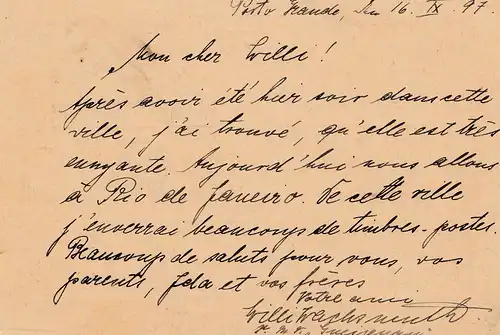 Porto Grande, den 16. IX. 97
Mon cher Willi!
Après avoir été hier soir dans cette
ville, j'ai trouvé, qu'elle est très
ennyante. Aujourd'hui nous allons
à Rio de Janeiro. De cette ville
j'enverrai beaucoup de timbres-postes.
Beaucoup de saluts pour vous, vos
parents, Ida et vos frères
Votre ami
Willi Wachsmuth